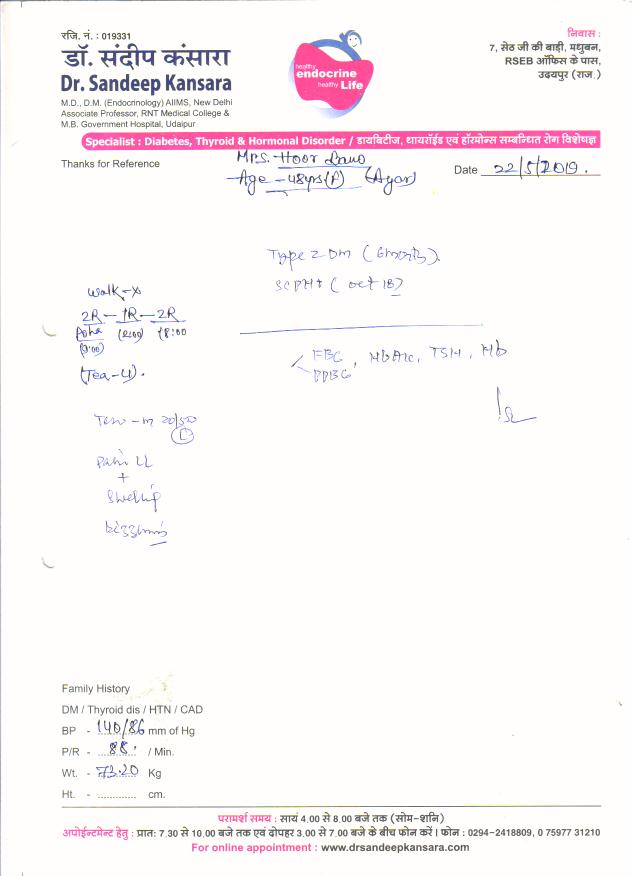 रजि. नं. : 019331
डॉ. संदीप कंसारा
Dr. Sandeep Kansara
M.D., D.M. (Endocrinology) AIIMS, New Delhi
Associate Professor, RNT Medical College &
M.B. Government Hospital, Udaipur
healthy
endocrine
healthy Life
निवास :
7, सेठ जी की बाड़ी, मधुबन,
RSEB ऑफिस के पास,
उदयपुर (राज.)
Specialist : Diabetes, Thyroid & Hormonal Disorder / डायबिटीज, थायरॉईड एवं हॉरमोन्स सम्बन्धित रोग विशेषज्ञ
Thanks for Reference
Mrs. Hoor Bano
Age - 48yrs (F) (Ayar)
Date 22/5/2019.
Type 2 DM (6months).
(Oct 18)
Walk - x
2R - 1R - 2R
Poha (2:00) (8:00)
(9:00)
(Tea-4).
FBG, HbA1c, TSH, Hb
PPBG
20/500
Pain LL
+
Swelling
Dizziness
Family History
DM / Thyroid dis / HTN / CAD
BP - 140/86 mm of Hg
P/R - 88. / Min.
Wt. - 73.20 Kg
Ht. - ............. cm.
परामर्श समय : सायं 4.00 से 8.00 बजे तक (सोम-शनि)
अपोईन्टमेन्ट हेतु : प्रात: 7.30 से 10.00 बजे तक एवं दोपहर 3.00 से 7.00 बजे के बीच फोन करें। फोन : 0294-2418809, 0 75977 31210
For online appointment : www.drsandeepkansara.com